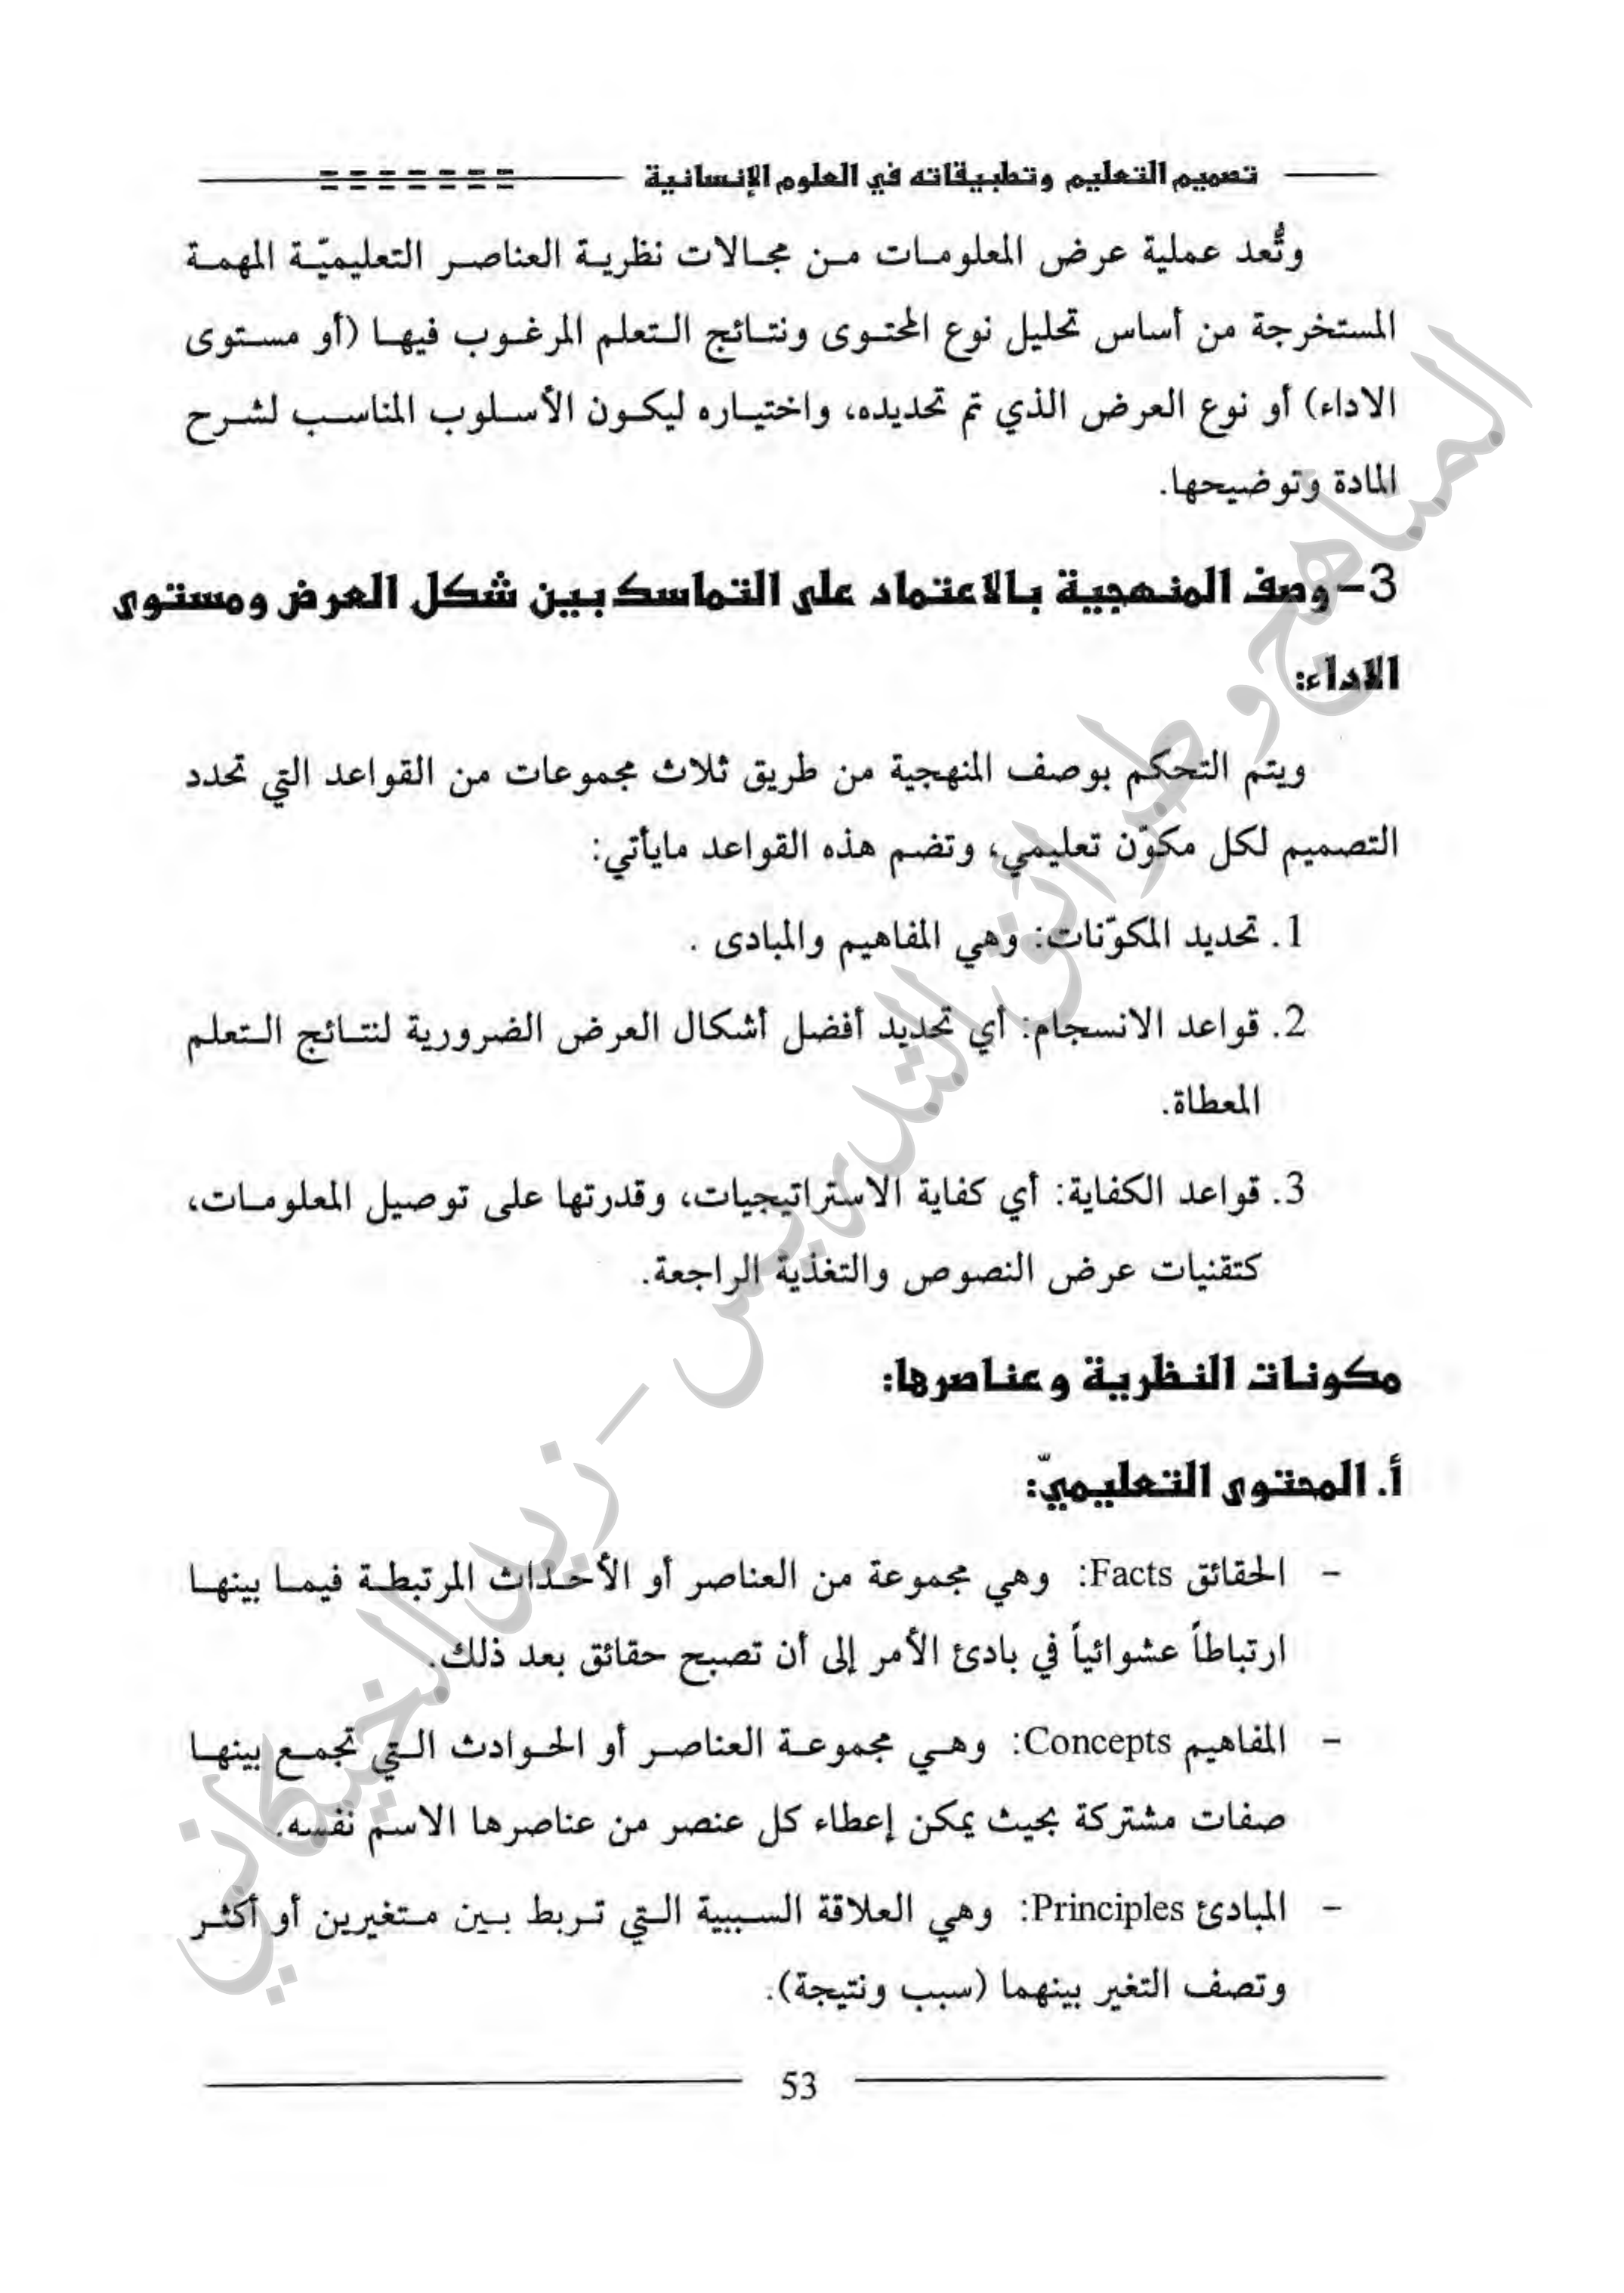 تصميم التعليم وتطبيقاته في العلوم الإنسانية
وتُعد عملية عرض المعلومات من مجالات نظرية العناصر التعليميّة المهمة
المستخرجة من أساس تحليل نوع المحتوى ونتائج التعلم المرغوب فيها (أو مستوى
الاداء) أو نوع العرض الذي تم تحديده، واختياره ليكون الأسلوب المناسب لشرح
المادة وتوضيحها.
3- وصف المنهجية بالاعتماد على التماسك بين شكل العرض ومستوى
الاداء:
ويتم التحكم بوصف المنهجية من طريق ثلاث مجموعات من القواعد التي تحدد
التصميم لكل مكوّن تعليمي، وتضم هذه القواعد مايأتي:
1. تحديد المكوّنات: وهي المفاهيم والمبادى .
2. قواعد الانسجام: أي تحديد أفضل أشكال العرض الضرورية لنتائج التعلم
المعطاة.
3. قواعد الكفاية: أي كفاية الاستراتيجيات، وقدرتها على توصيل المعلومات،
كتقنيات عرض النصوص والتغذية الراجعة.
مكونات النظرية وعناصرها:
أ. المحتوى التعليميّ:
- الحقائق Facts: وهي مجموعة من العناصر أو الأحداث المرتبطة فيما بينها
ارتباطاً عشوائياً في بادئ الأمر إلى أن تصبح حقائق بعد ذلك.
- المفاهيم Concepts: وهي مجموعة العناصر أو الحوادث التي تجمع بينها
صفات مشتركة بحيث يمكن إعطاء كل عنصر من عناصرها الاسم نفسه.
- المبادئ Principles: وهي العلاقة السببية التي تربط بين متغيرين أو أكثر
وتصف التغير بينهما (سبب ونتيجة).
53
المناهج وطرائق التدريس - زيد الخيكاني